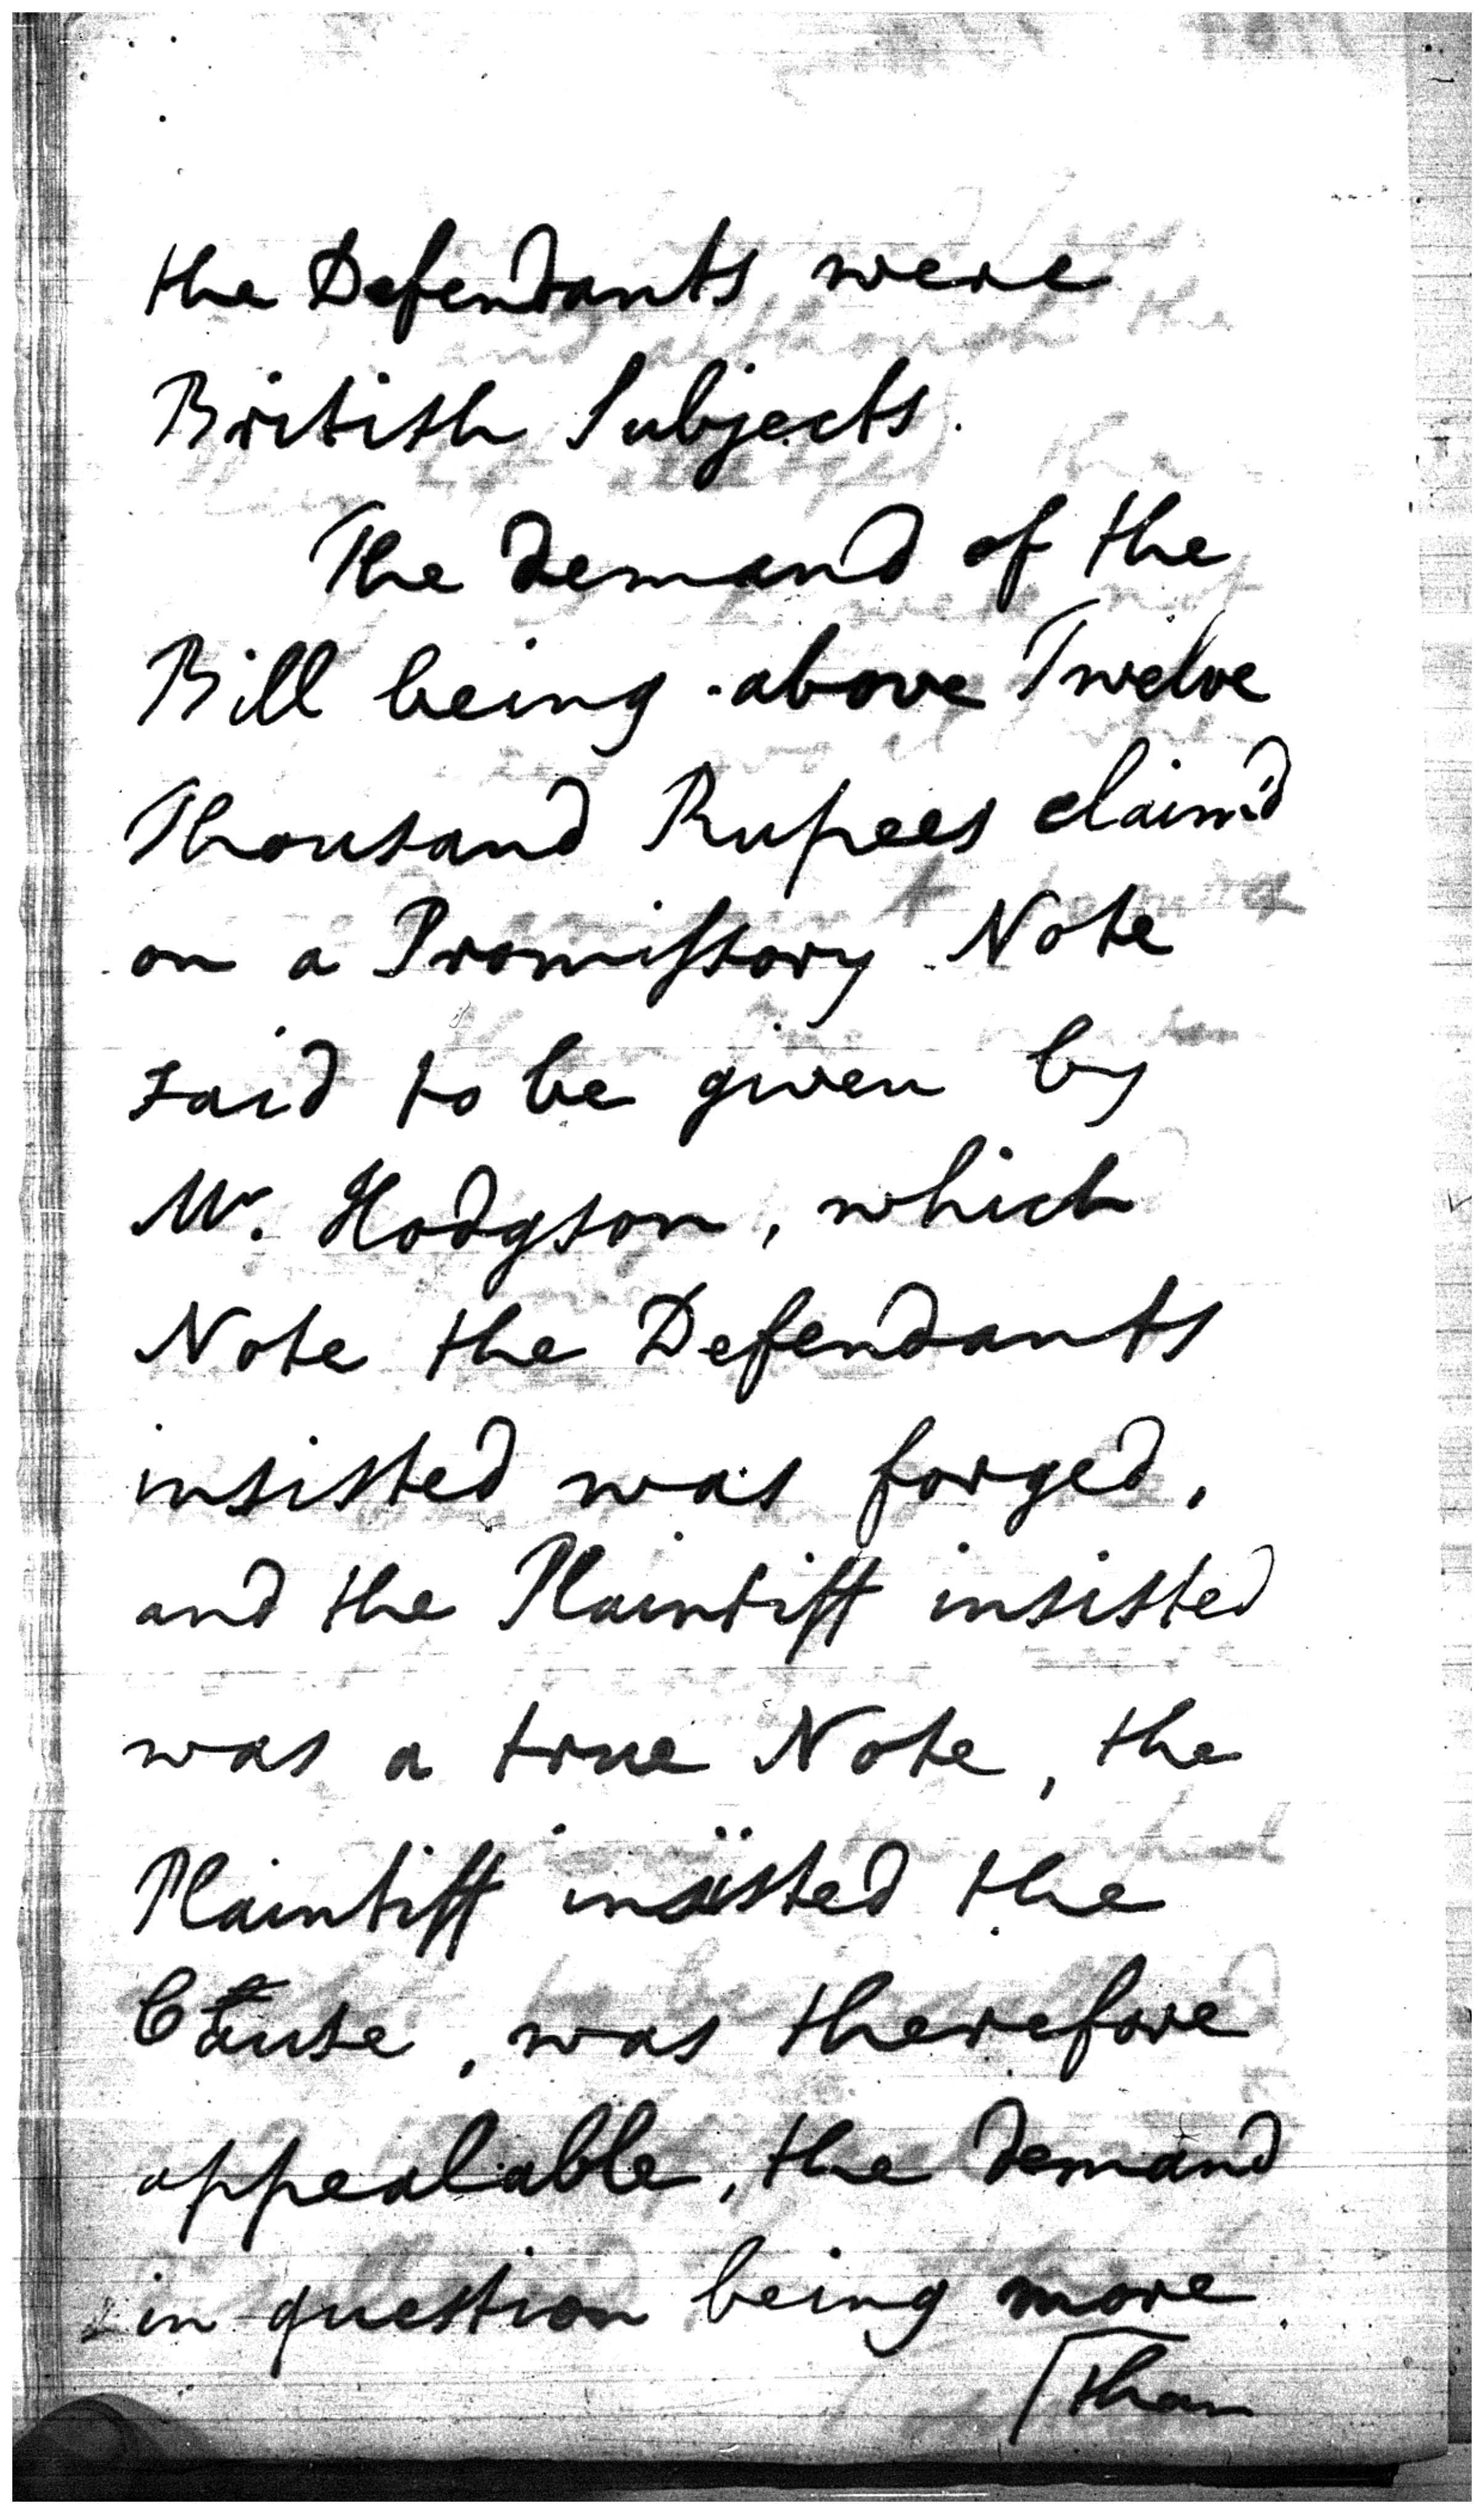 the Defendants were
British Subjects.
The demand of the
Bill being above Twelve
Thousand Rupees claim'd
on a Promissory Note
said to be given by
Mr. Hodgson, which
Note the Defendants
insisted was forged,
and the Plaintiff insisted
was a true Note, the
Plaintiff insisted the
Cause, was therefore
appealable, the demand
in question being more
than